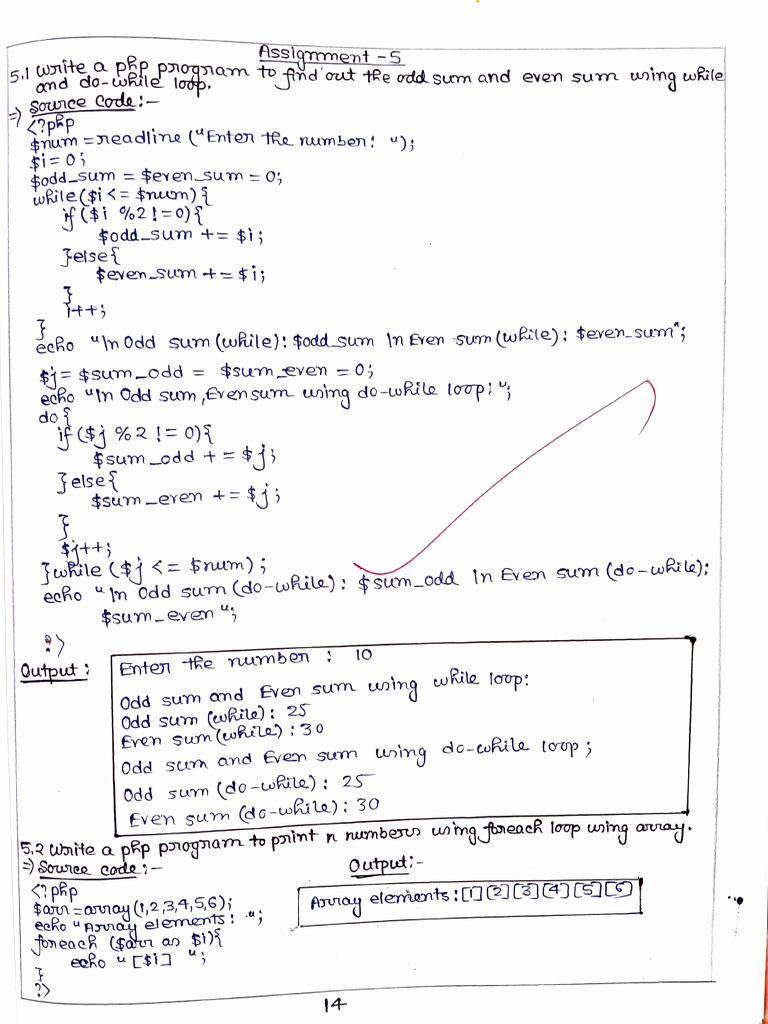 Assignment -5
5.1 Write a php program to find out the odd sum and even sum using while
and do-while loop.
=> Source Code:-
<?php
$num =readline ("Enter the number: ");
$i= 0;
$odd_sum = $even_sum = 0;
while ($i <= $num) {
if ($i %2 != 0) {
$odd_sum += $i;
}else{
$even_sum += $i;
}
i++;
}
echo "\n Odd sum (while): $odd_sum \n Even sum (while): $even_sum";
$j= $sum_odd = $sum_even = 0;
echo "\n Odd sum, Even sum using do-while loop: ";
do {
if ($j %2 != 0) {
$sum_odd += $j;
}else{
$sum_even += $j;
}
$j++;
}while ($j <= $num) ;
echo "\n Odd sum (do-while): $sum_odd \n Even sum (do-while):
$sum_even ";
?>
Output :
Enter the number : 10
Odd sum and Even sum using while loop:
Odd sum (while): 25
Even sum (while): 30
Odd sum and Even sum using do-while loop ;
Odd sum (do-while) : 25
Even sum (do-while) : 30
5.2 Write a php program to print n numbers using foreach loop using array.
=> Source code:-
<?php
$arr =array (1,2,3,4,5,6);
echo "Array elements: ";
foreach ($arr as $i){
echo " [$i] ";
}
?>
Output:-
Array elements: [1] [2] [3] [4] [5] [6]
14